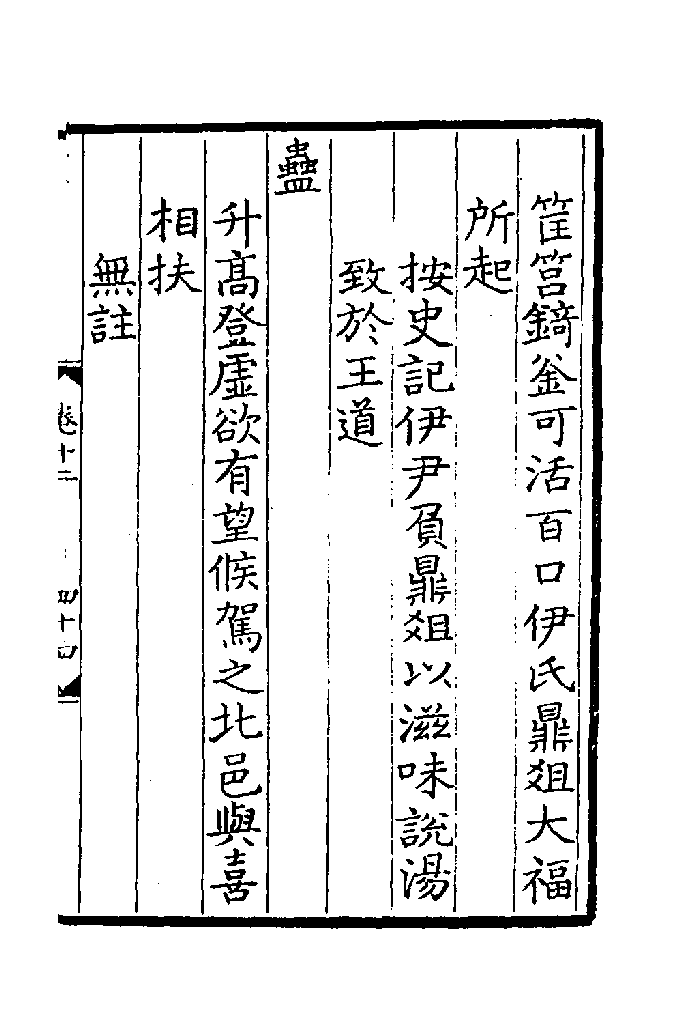 筐筥錡釡可活百口伊氏鼎爼大福
所起
按史記伊尹負鼎爼以滋味說湯
致於王道
蠱
升髙登虚欲有望候駕之北邑與喜
相扶
無註
卷十二
四十四